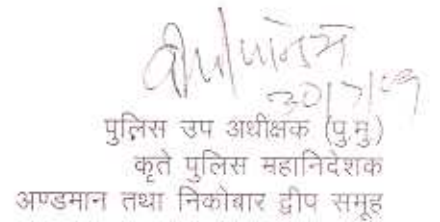 30/7/09
पुलिस उप अधीक्षक (पु.मु.)
कृते पुलिस महानिदेशक
अण्डमान तथा निकोबार द्वीप समूह